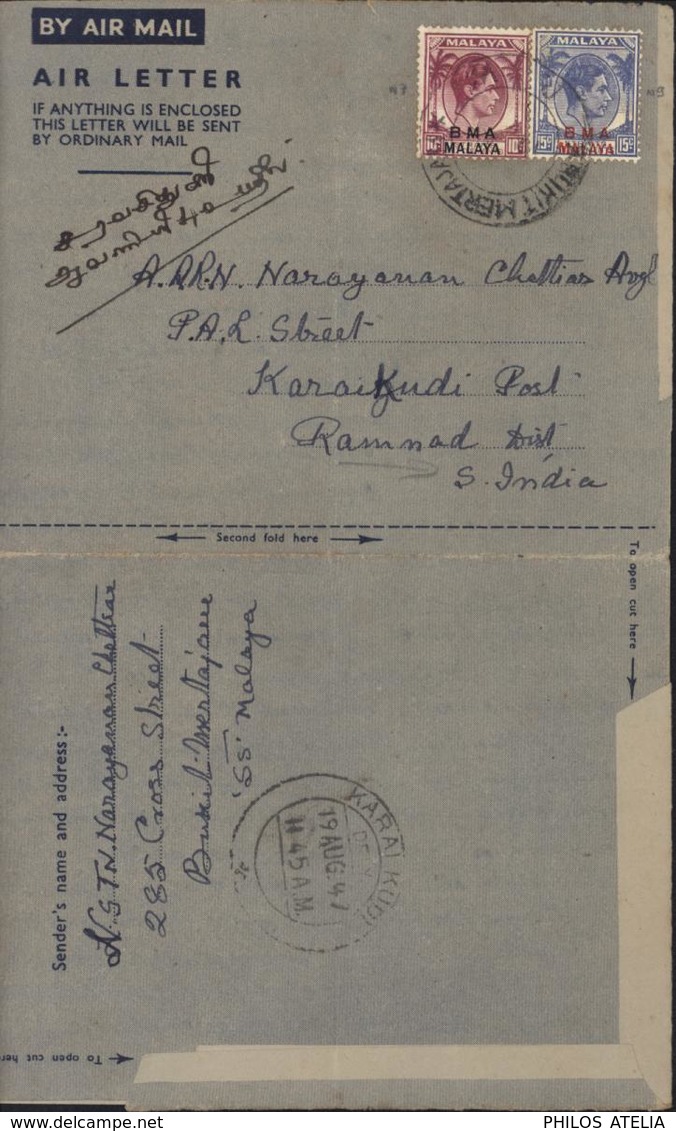 BY AIR MAIL
AIR LETTER
IF ANYTHING IS ENCLOSED
THIS LETTER WILL BE SENT
BY ORDINARY MAIL
MALAYA
10c 10c
BMA
MALAYA
MALAYA
15c 15c
BMA
MALAYA
BUKIT MERTAJA
A.RR.N. Narayanan Chettiar Avgl
P.A.L. Street
Karaikudi Post
Ramnad Dist
S. India
Second fold here
To open cut here
Sender's name and address :-
N.S.T.N. Narayanan Chettiar
285 Cross Street
Bukit Mertajam
'SS' Malaya
KARAIKUDI
19 AUG. 47
11 45 A.M.
To open cut here
PHILOS ATELIA